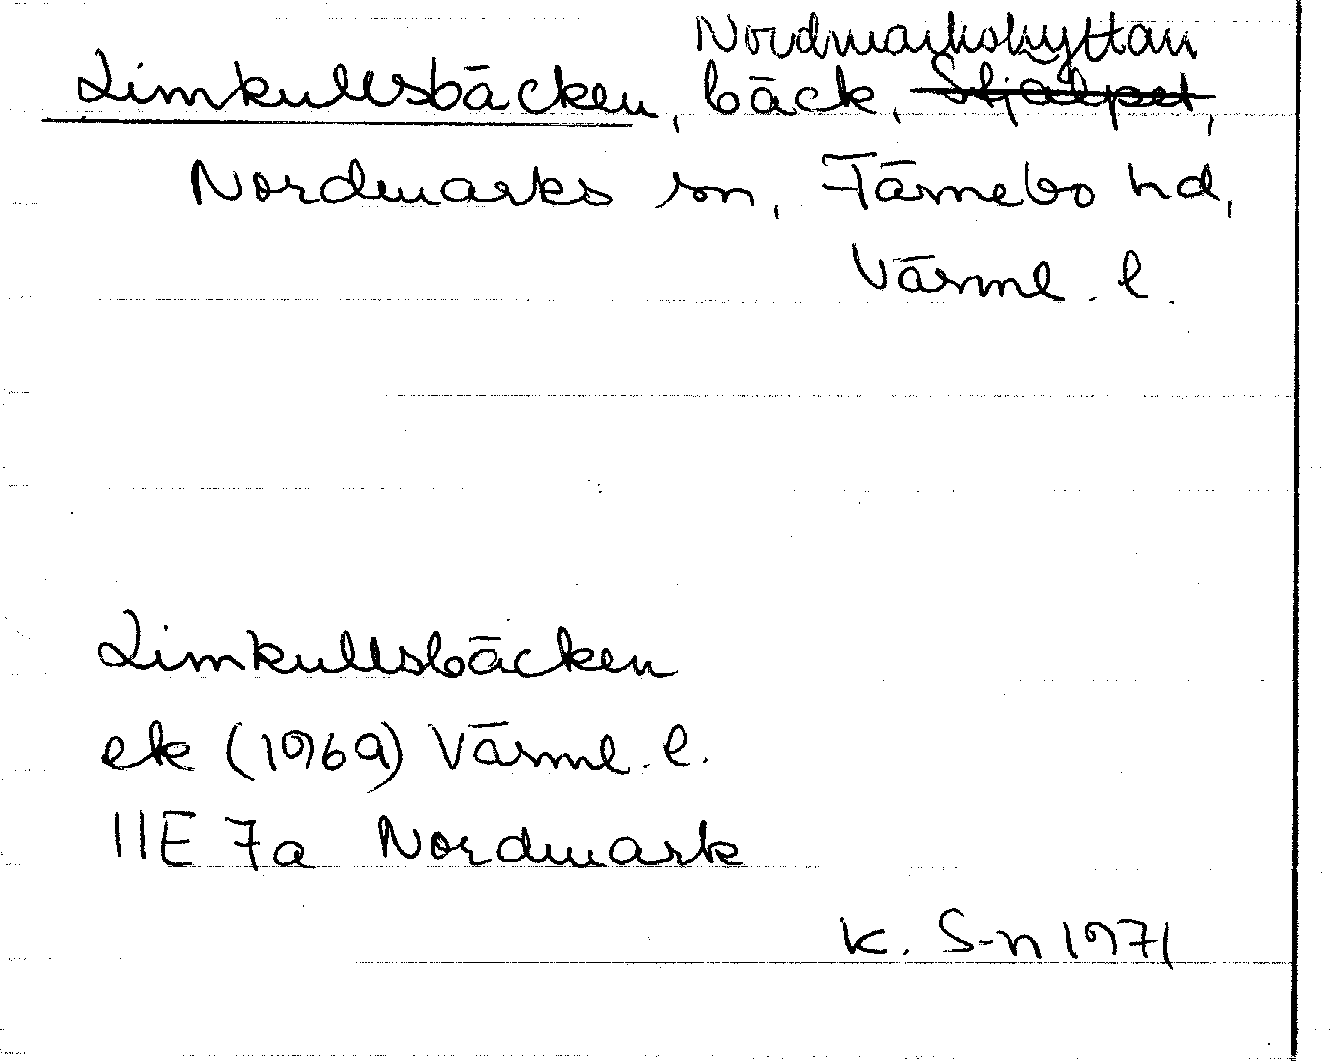 Nordmarkshyttan
Limkullsbäcken, bäck, Stjälpet,
Nordmarks sn, Färnebo hd,
Värml. l.
Limkullsbäcken
ek (1969) Värml. l.
11E 7a Nordmark
K. S-n 1971